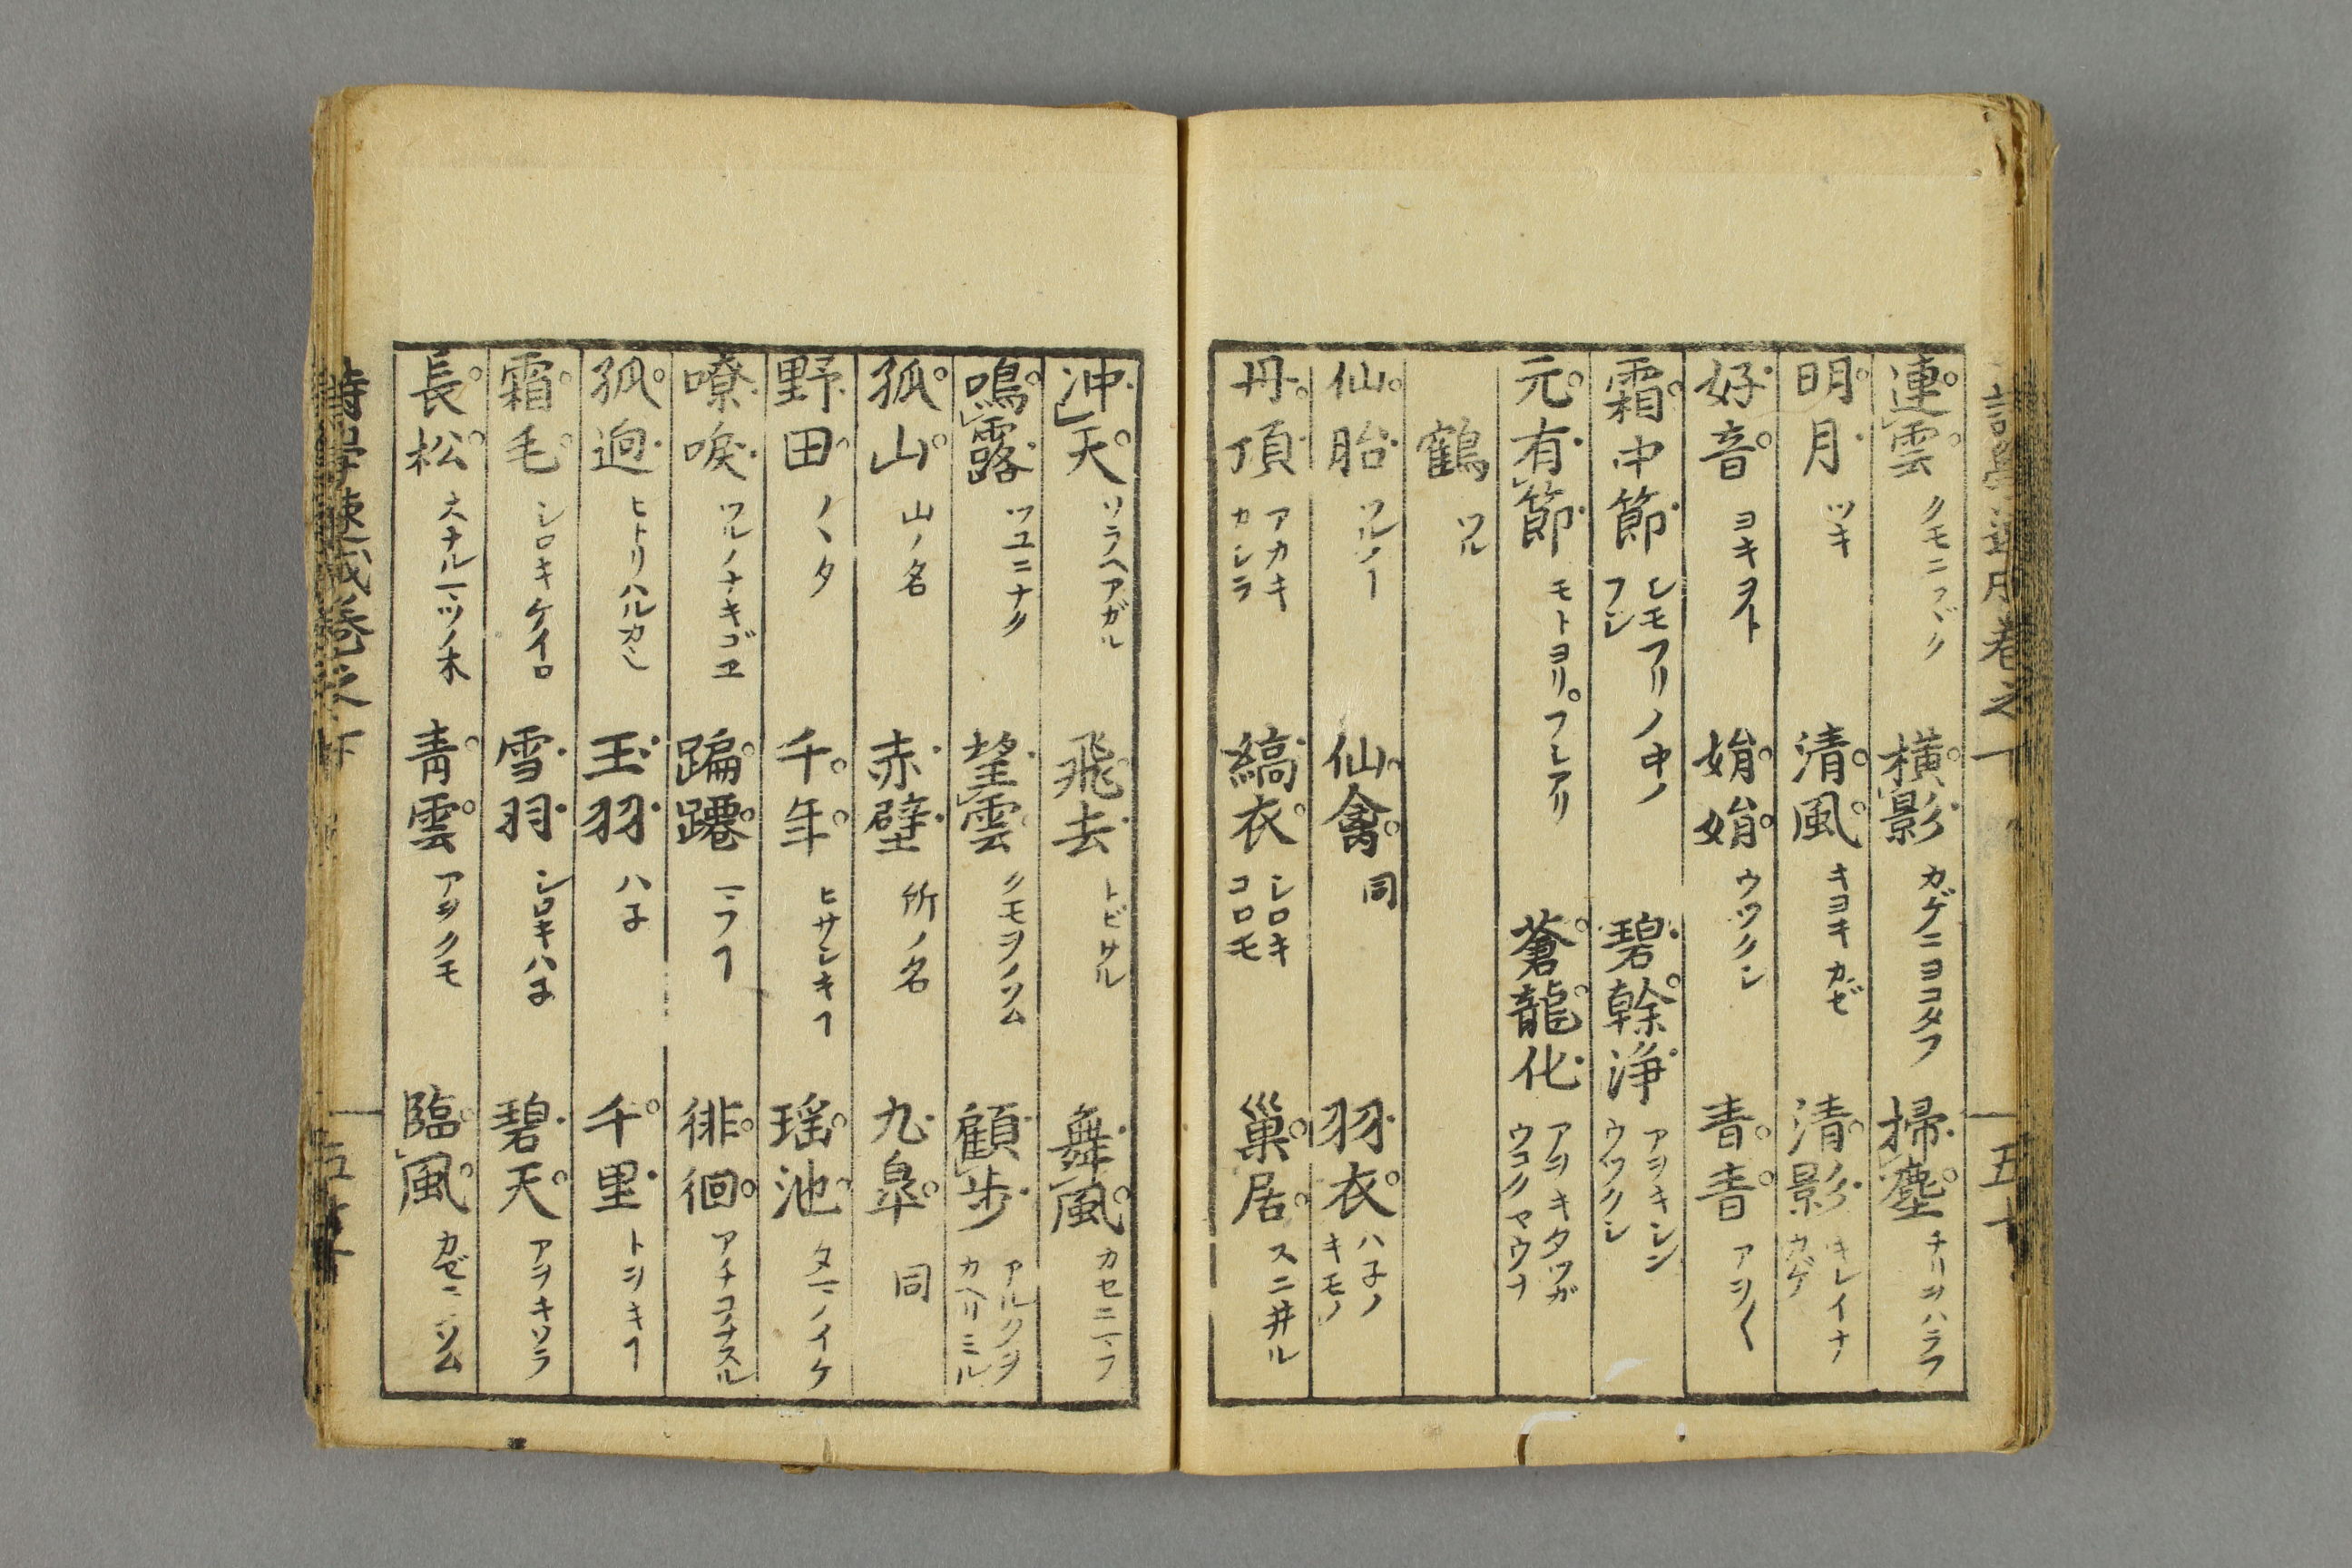 連雲 クモニツヾク 橫影 カゲニヨコタフ 掃塵 チリヲハラフ
明月 ツキ 清風 キヨキカゼ 清影 キレイナカゲ
好音 ヨキヲト 娟娟 ウツクシ 青青 アヲ〱
霜中節 シモフリノ中ノフシ 碧幹浄 アヲキシンウツクシ
元有節 モトヨリフシアリ 蒼龍化 アヲキタツガウコク
鶴 ツル
仙胎 ツルノヿ 仙禽 同 羽衣 ハ子ノキモノ
丹頂 アカキカシラ 縞衣 シロキコロモ 巢居 スニ井ル
冲天 ソラヘアガル 飛去 トビサル 舞風 カセニマフ
鳴露 ツユニナク 望雲 クモヲノソム 顧步 アルクヲカヘリミル
孤山 山ノ名 赤壁 所ノ名 九皐 同
野田 ノヽタ 千年 ヒサシキヿ 瑶池 タマノイケ
嘹唳 ツルノナキゴヱ 蹁躚 マフヿ 徘徊 アチコチスル
孤逈 ヒトリハルカニ 玉羽 ハ子 千里 トヲキヿ
霜毛 シロキケイロ 雪羽 シロキハ子 碧天 アヲキソラ
長松 大ナルマツノ木 青雲 アヲクモ 臨風 カゼニノソム